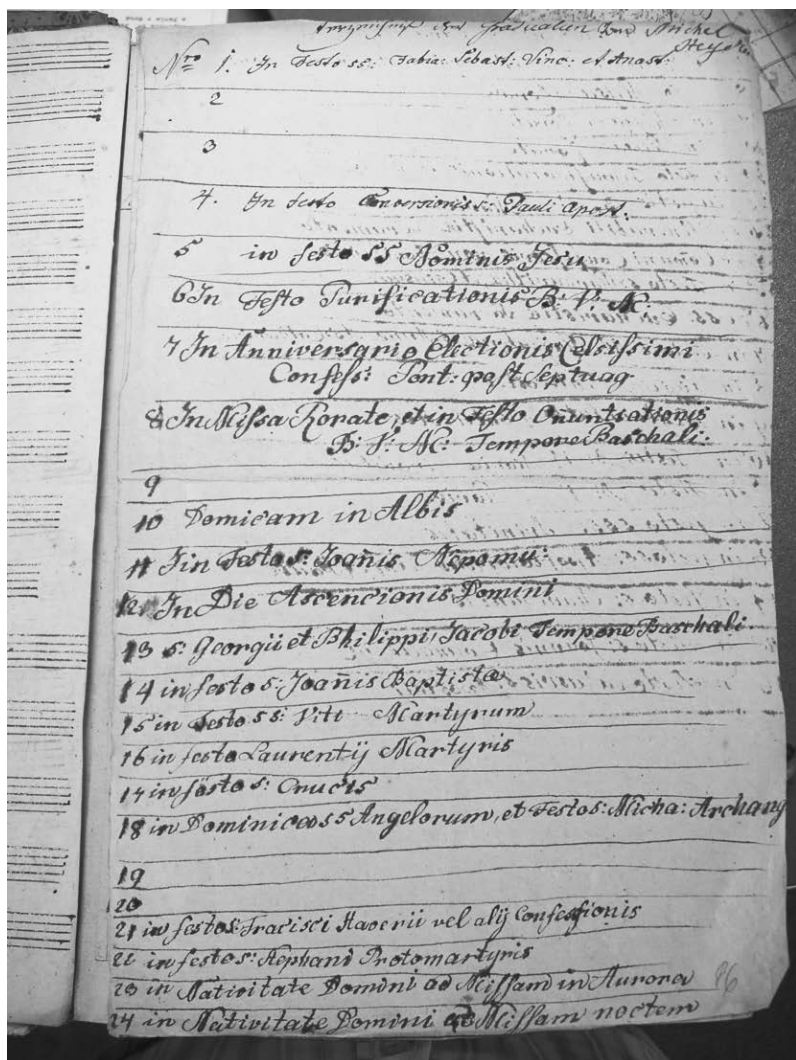 Verzeichniß der Gradualien von Michel
Heydn
Nro 1. In Festo ss: Fabia: Sebast: Vinc: et Anast:
2
3
4. In Festo Conversionis s: Pauli Apost:
5 in Festo SS Nominis Jesu
6 In Festo Purificationis B: V: M:
7 In Anniversario Electionis Celsissimi
Confess: Pont: post Septuag
8 In Missa Rorate, et in Festo Anuntiationis
B: V: M: Tempore Paschali:
9
10 Domicam in Albis
11 Jin Festo s: Joan̄is Nepomu:
12 In Die Ascencionis Domini
13 s: Georgii et Philippi Jacobi Tempore Paschali.
14 in festo s: Joan̄is Baptistæ
15 in Festo ss: Viti Martyrum
16 in festo Laurentij Martyris
17 in festo s: Crucis
18 in Dominica ss Angelorum, et Festo s: Micha: Archang
19
20
21 in festo s: Fracisci Xaverii vel alij Confessionis
22 in festo s: Stephani Protomartyris
23 in Nativitate Domini ad Missam in Aurora
24 in Nativitate Domini ad Missam noctem
86